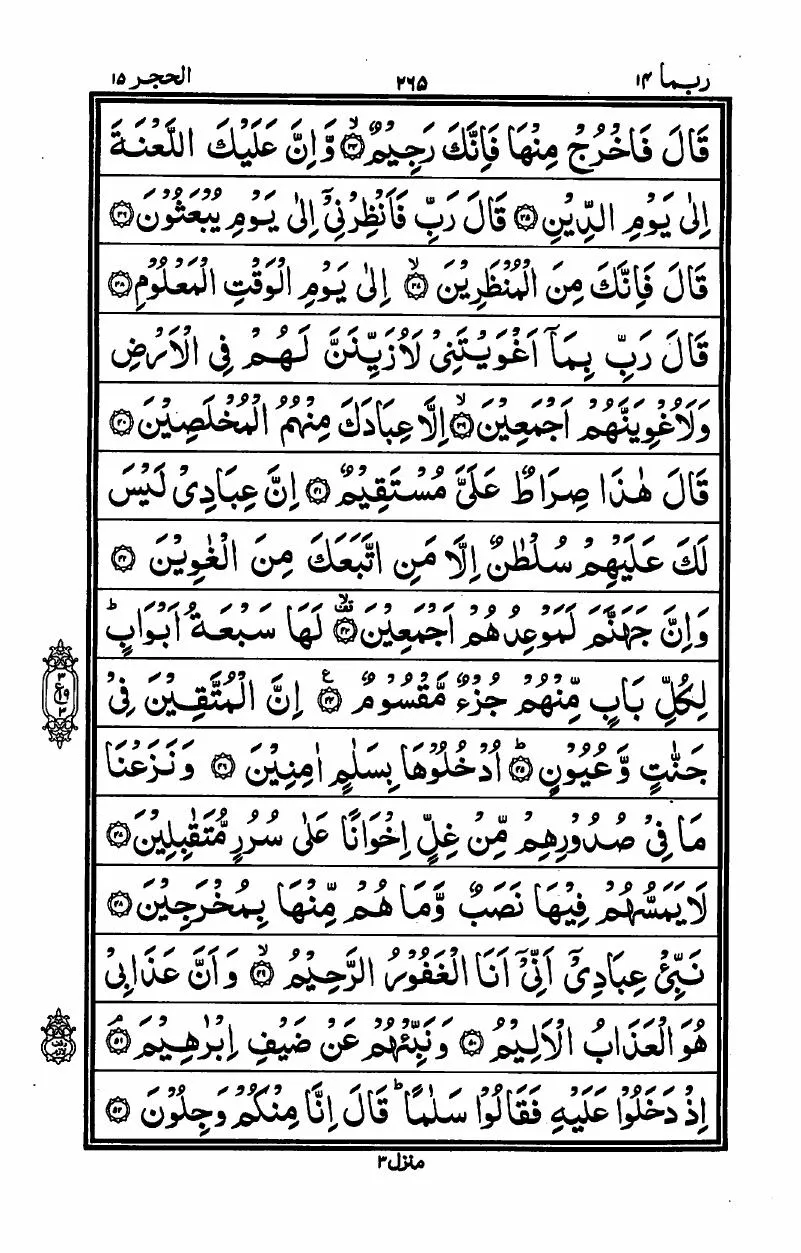 ربما ۱۴ ۲۶۵ الحجر ۱۵
قَالَ فَاخْرُجْ مِنْهَا فَاِنَّكَ رَجِيْمٌ ۙ﴿۳۴﴾ وَّاِنَّ عَلَيْكَ اللَّعْنَةَ
اِلٰى يَوْمِ الدِّيْنِ ﴿۳۵﴾ قَالَ رَبِّ فَاَنْظِرْنِيْٓ اِلٰى يَوْمِ يُبْعَثُوْنَ ﴿۳۶﴾
قَالَ فَاِنَّكَ مِنَ الْمُنْظَرِيْنَ ۙ﴿۳۷﴾ اِلٰى يَوْمِ الْوَقْتِ الْمَعْلُوْمِ ﴿۳۸﴾
قَالَ رَبِّ بِمَآ اَغْوَيْتَنِيْ لَاُزَيِّنَنَّ لَهُمْ فِي الْاَرْضِ
وَلَاُغْوِيَنَّهُمْ اَجْمَعِيْنَ ۙ﴿۳۹﴾ اِلَّا عِبَادَكَ مِنْهُمُ الْمُخْلَصِيْنَ ﴿۴۰﴾
قَالَ هٰذَا صِرَاطٌ عَلَيَّ مُسْتَقِيْمٌ ﴿۴۱﴾ اِنَّ عِبَادِيْ لَيْسَ
لَكَ عَلَيْهِمْ سُلْطٰنٌ اِلَّا مَنِ اتَّبَعَكَ مِنَ الْغٰوِيْنَ ﴿۴۲﴾
وَاِنَّ جَهَنَّمَ لَمَوْعِدُهُمْ اَجْمَعِيْنَ ۙ﴿۴۳﴾ لَهَا سَبْعَةُ اَبْوَابٍ ؕ
لِكُلِّ بَابٍ مِّنْهُمْ جُزْءٌ مَّقْسُوْمٌ ﴿۴۴﴾ اِنَّ الْمُتَّقِيْنَ فِيْ
جَنّٰتٍ وَّعُيُوْنٍ ؕ﴿۴۵﴾ اُدْخُلُوْهَا بِسَلٰمٍ اٰمِنِيْنَ ﴿۴۶﴾ وَنَزَعْنَا
مَا فِيْ صُدُوْرِهِمْ مِّنْ غِلٍّ اِخْوَانًا عَلٰى سُرُرٍ مُّتَقٰبِلِيْنَ ﴿۴۷﴾
لَا يَمَسُّهُمْ فِيْهَا نَصَبٌ وَّمَا هُمْ مِّنْهَا بِمُخْرَجِيْنَ ﴿۴۸﴾
نَبِّئْ عِبَادِيْٓ اَنِّيْٓ اَنَا الْغَفُوْرُ الرَّحِيْمُ ۙ﴿۴۹﴾ وَاَنَّ عَذَابِيْ
هُوَ الْعَذَابُ الْاَلِيْمُ ﴿۵۰﴾ وَنَبِّئْهُمْ عَنْ ضَيْفِ اِبْرٰهِيْمَ ۘ﴿۵۱﴾
اِذْ دَخَلُوْا عَلَيْهِ فَقَالُوْا سَلٰمًا ؕ قَالَ اِنَّا مِنْكُمْ وَجِلُوْنَ ﴿۵۲﴾
منزل ۳